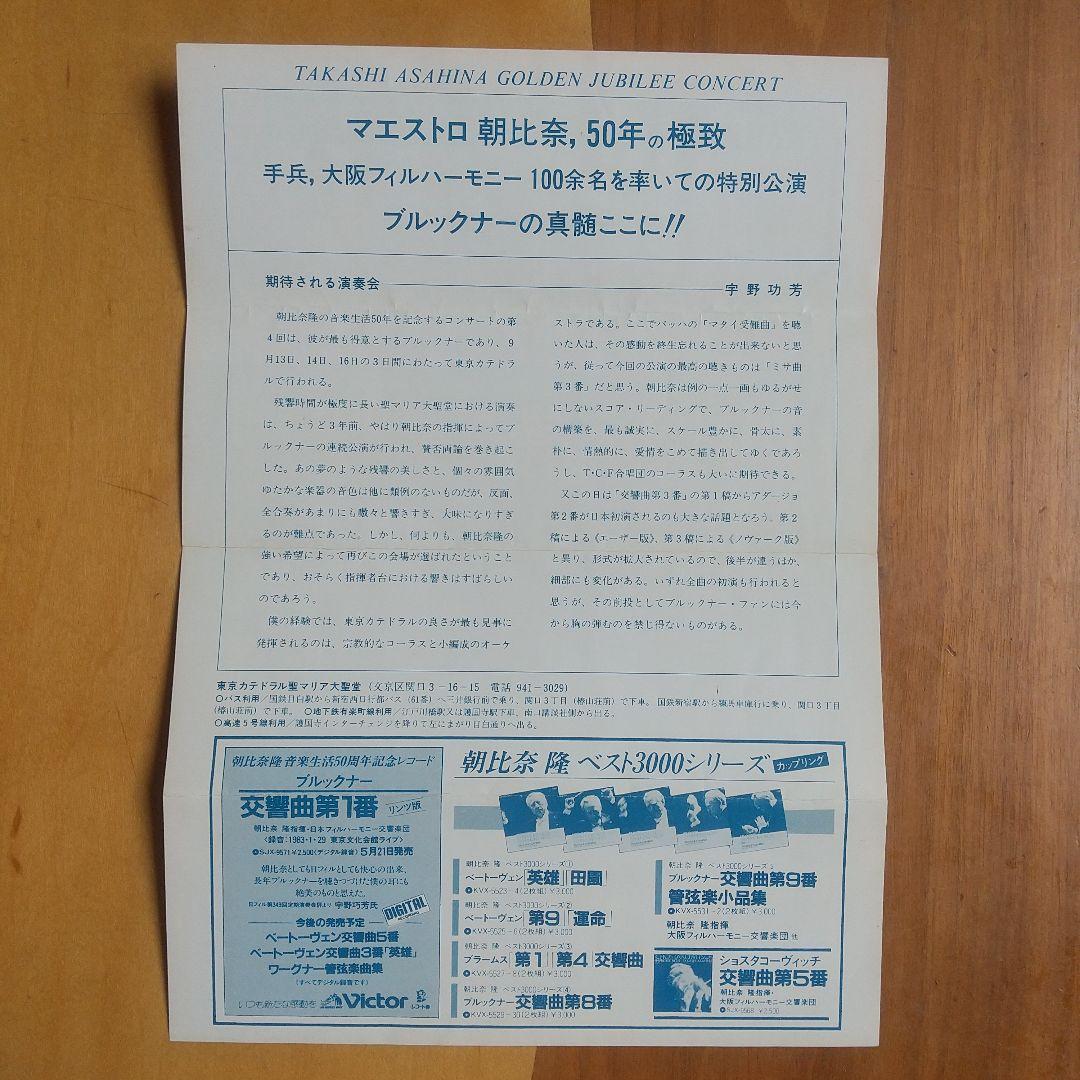 TAKASHI ASAHINA GOLDEN JUBILEE CONCERT
マエストロ 朝比奈, 50年の極致
手兵, 大阪フィルハーモニー 100余名を率いての特別公演
ブルックナーの真髄ここに!!
期待される演奏会
宇野功芳
朝比奈隆の音楽生活50年を記念するコンサートの第
4回は、彼が最も得意とするブルックナーであり、9
月13日、14日、16日の3日間にわたって東京カテドラ
ルで行われる。
残響時間が極度に長い聖マリア大聖堂における演奏
は、ちょうど3年前、やはり朝比奈の指揮によってブ
ルックナーの連続公演が行われ、賛否両論を巻き起こ
した。あの夢のような残響の美しさと、個々の雰囲気
ゆたかな楽器の音色は他に類例のないものだが、反面、
全合奏があまりにも嗷々と響きすぎ、大味になりすぎ
るのが難点であった。しかし、何よりも、朝比奈隆の
強い希望によって再びこの会場が選ばれたということ
であり、おそらく指揮者台における響きはすばらしい
のであろう。
僕の経験では、東京カテドラルの良さが最も見事に
発揮されるのは、宗教的なコーラスと小編成のオーケ
ストラである。ここでバッハの「マタイ受難曲」を聴
いた人は、その感動を終生忘れることが出来ないと思
うが、従って今回の公演の最高の聴きものは「ミサ曲
第3番」だと思う。朝比奈は例の一点一画もゆるがせ
にしないスコア・リーディングで、ブルックナーの音
の構築を、最も誠実に、スケール豊かに、骨太に、素
朴に、情熱的に、愛情をこめて描き出してゆくであろ
うし、T・C・F合唱団のコーラスも大いに期待できる。
又この日は「交響曲第3番」の第1稿からアダージョ
第2番が日本初演されるのも大きな話題となろう。第2
稿による《エーザー版》、第3稿による《ノヴァーク版》
と異り、形式が拡大されているので、後半が違うほか、
細部にも変化がある。いずれ全曲の初演も行われると
思うが、その前投としてブルックナー・ファンには今
から胸の弾むのを禁じ得ないものがある。
東京カテドラル聖マリア大聖堂 (文京区関口3-16-15 電話 941-3029)
○バス利用/国鉄目白駅から新宿西口行都バス(61番)へ三井銀行前で乗り、関口3丁目(椿山荘前)で下車。国鉄新宿駅から練馬車庫行に乗り、関口3丁目
(椿山荘前)で下車。○地下鉄有楽町線利用/江戸川橋駅又は護国寺駅下車、南口講談社側から出る。
○高速5号線利用/護国寺インターチェンジを降りて左にまがり目白通りへ出る。
朝比奈隆 音楽生活50周年記念レコード
ブルックナー
交響曲第1番 リンツ版
朝比奈 隆指揮・日本フィルハーモニー交響楽団
〈録音:1983・1・29 東京文化会館ライブ〉
●SJX-9571 ¥2,500(デジタル録音) 5月21日発売
朝比奈としても日フィルとしても快心の出来、
長年ブルックナーを聴きつづけた僕の耳にも
絶美のものと思えた。
日フィル第349回定期演奏会評より 宇野功芳氏
DIGITAL
今後の発売予定
ベートーヴェン交響曲5番
ベートーヴェン交響曲3番「英雄」
ワーグナー管弦楽曲集
(すべてデジタル録音です)
いつも新たな感動を Victor
朝比奈 隆 ベスト3000シリーズ カップリング
朝比奈 隆 ベスト3000シリーズ①
ベートーヴェン「英雄」「田園」
●KVX-5523-4(2枚組) ¥3,000
朝比奈 隆 ベスト3000シリーズ②
ベートーヴェン「第9」「運命」
●KVX-5525-6(2枚組) ¥3,000
朝比奈 隆 ベスト3000シリーズ③
ブラームス「第1」「第4」交響曲
●KVX-5527-8(2枚組) ¥3,000
朝比奈 隆 ベスト3000シリーズ④
ブルックナー 交響曲第8番
●KVX-5529-30(2枚組) ¥3,000
朝比奈 隆 ベスト3000シリーズ5
ブルックナー 交響曲第9番
管弦楽小品集
●KVX-5531-2(2枚組) ¥3,000
朝比奈 隆指揮
大阪フィルハーモニー交響楽団 他
ショスタコーヴィッチ
交響曲第5番
朝比奈 隆指揮・
大阪フィルハーモニー交響楽団
●SJX-9568 ¥2,500